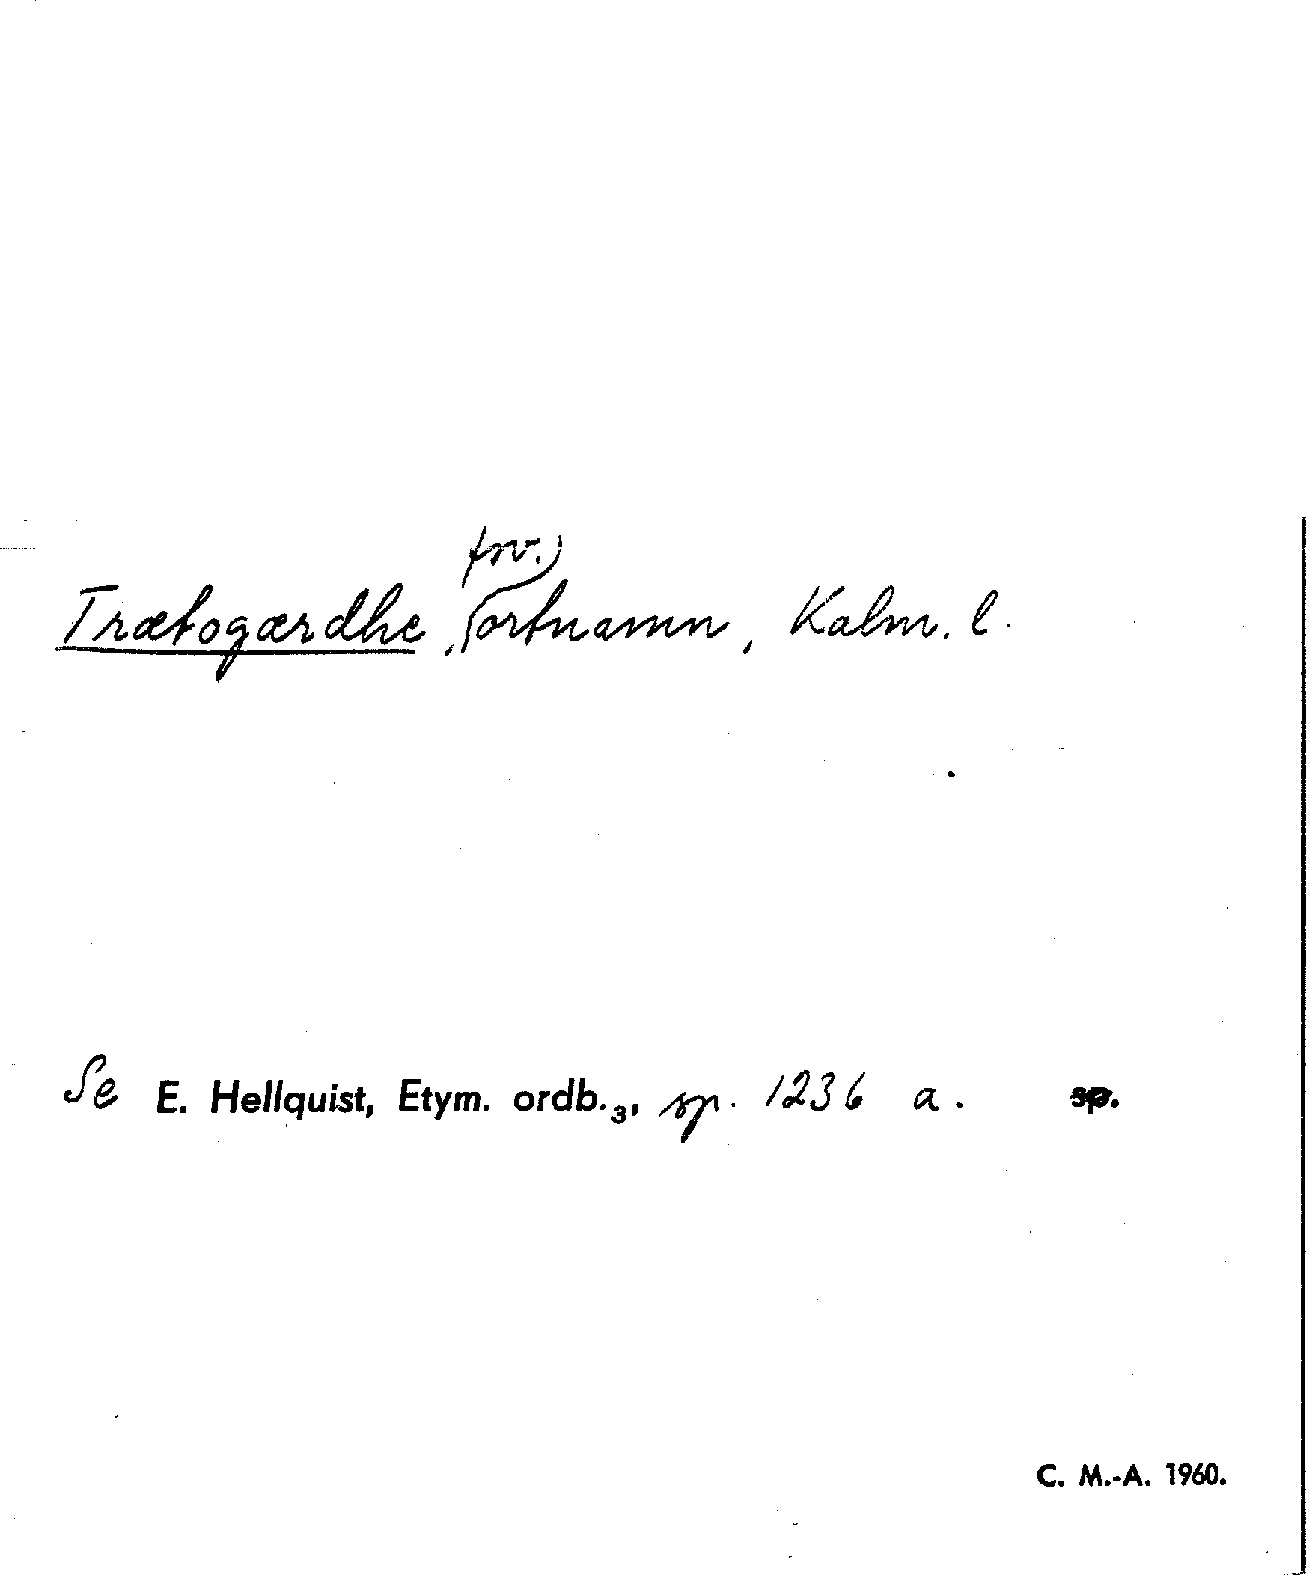 Trætogærdhe, fnv. ortnamn, Kalm. l.
Se E. Hellquist, Etym. ordb.₃, sp. 1236 a. sp.
C. M.-A. 1960.